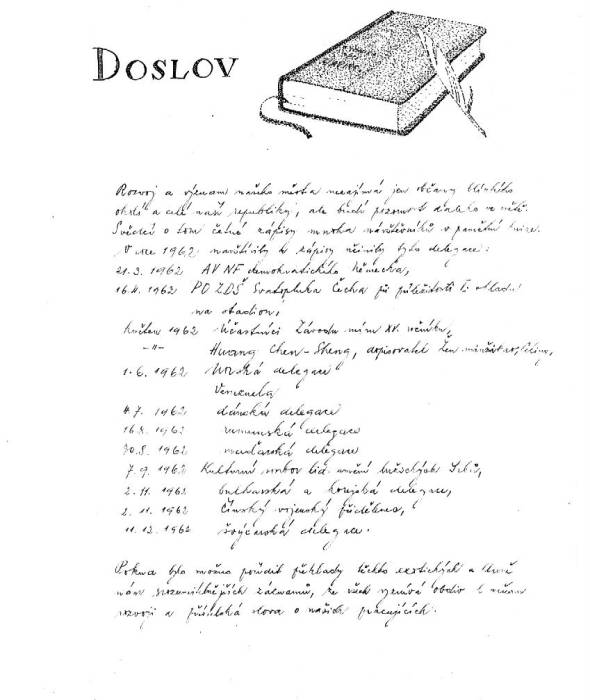 DOSLOV
Rozvoj a význam našeho města nezajímá jen občany blízkého
okolí a celé naší republiky, ale budí pozornost daleko ve světě.
Svědčí o tom četné zápisy mnoha návštěvníků v pamětní knize.
V roce 1962 navštívily a zápisy učinily tyto delegace:
21.3. 1962 AV NF demokratického Německa,
16.4. 1962 PO ZDŠ Svatopluka Čecha při příležitosti
na stadion,
Květen 1962 Účastníci Závodu míru XV. ročníku,
-"- Huang Chen-Sheng, dopisovatel Žen
1.6. 1962 delegace
Venezuela
4.7. 1962 dánská delegace
16.8. 1962 rumunská delegace
30.8. 1962 maďarská delegace
7.9. 1962 Kulturní soubor lid. umění lužických Srbů,
2.11. 1962 bulharská a korejská delegace,
2.11. 1962 Čínský vojenský přidělenec,
11.12. 1962 švýcarská delegace.
Pokud bylo možno pořídit překlady těchto exotických a
nám srozumitelnějších záznamů, ze všech vyznívá obdiv k
rozvoji a přátelská slova o našich pracujících.